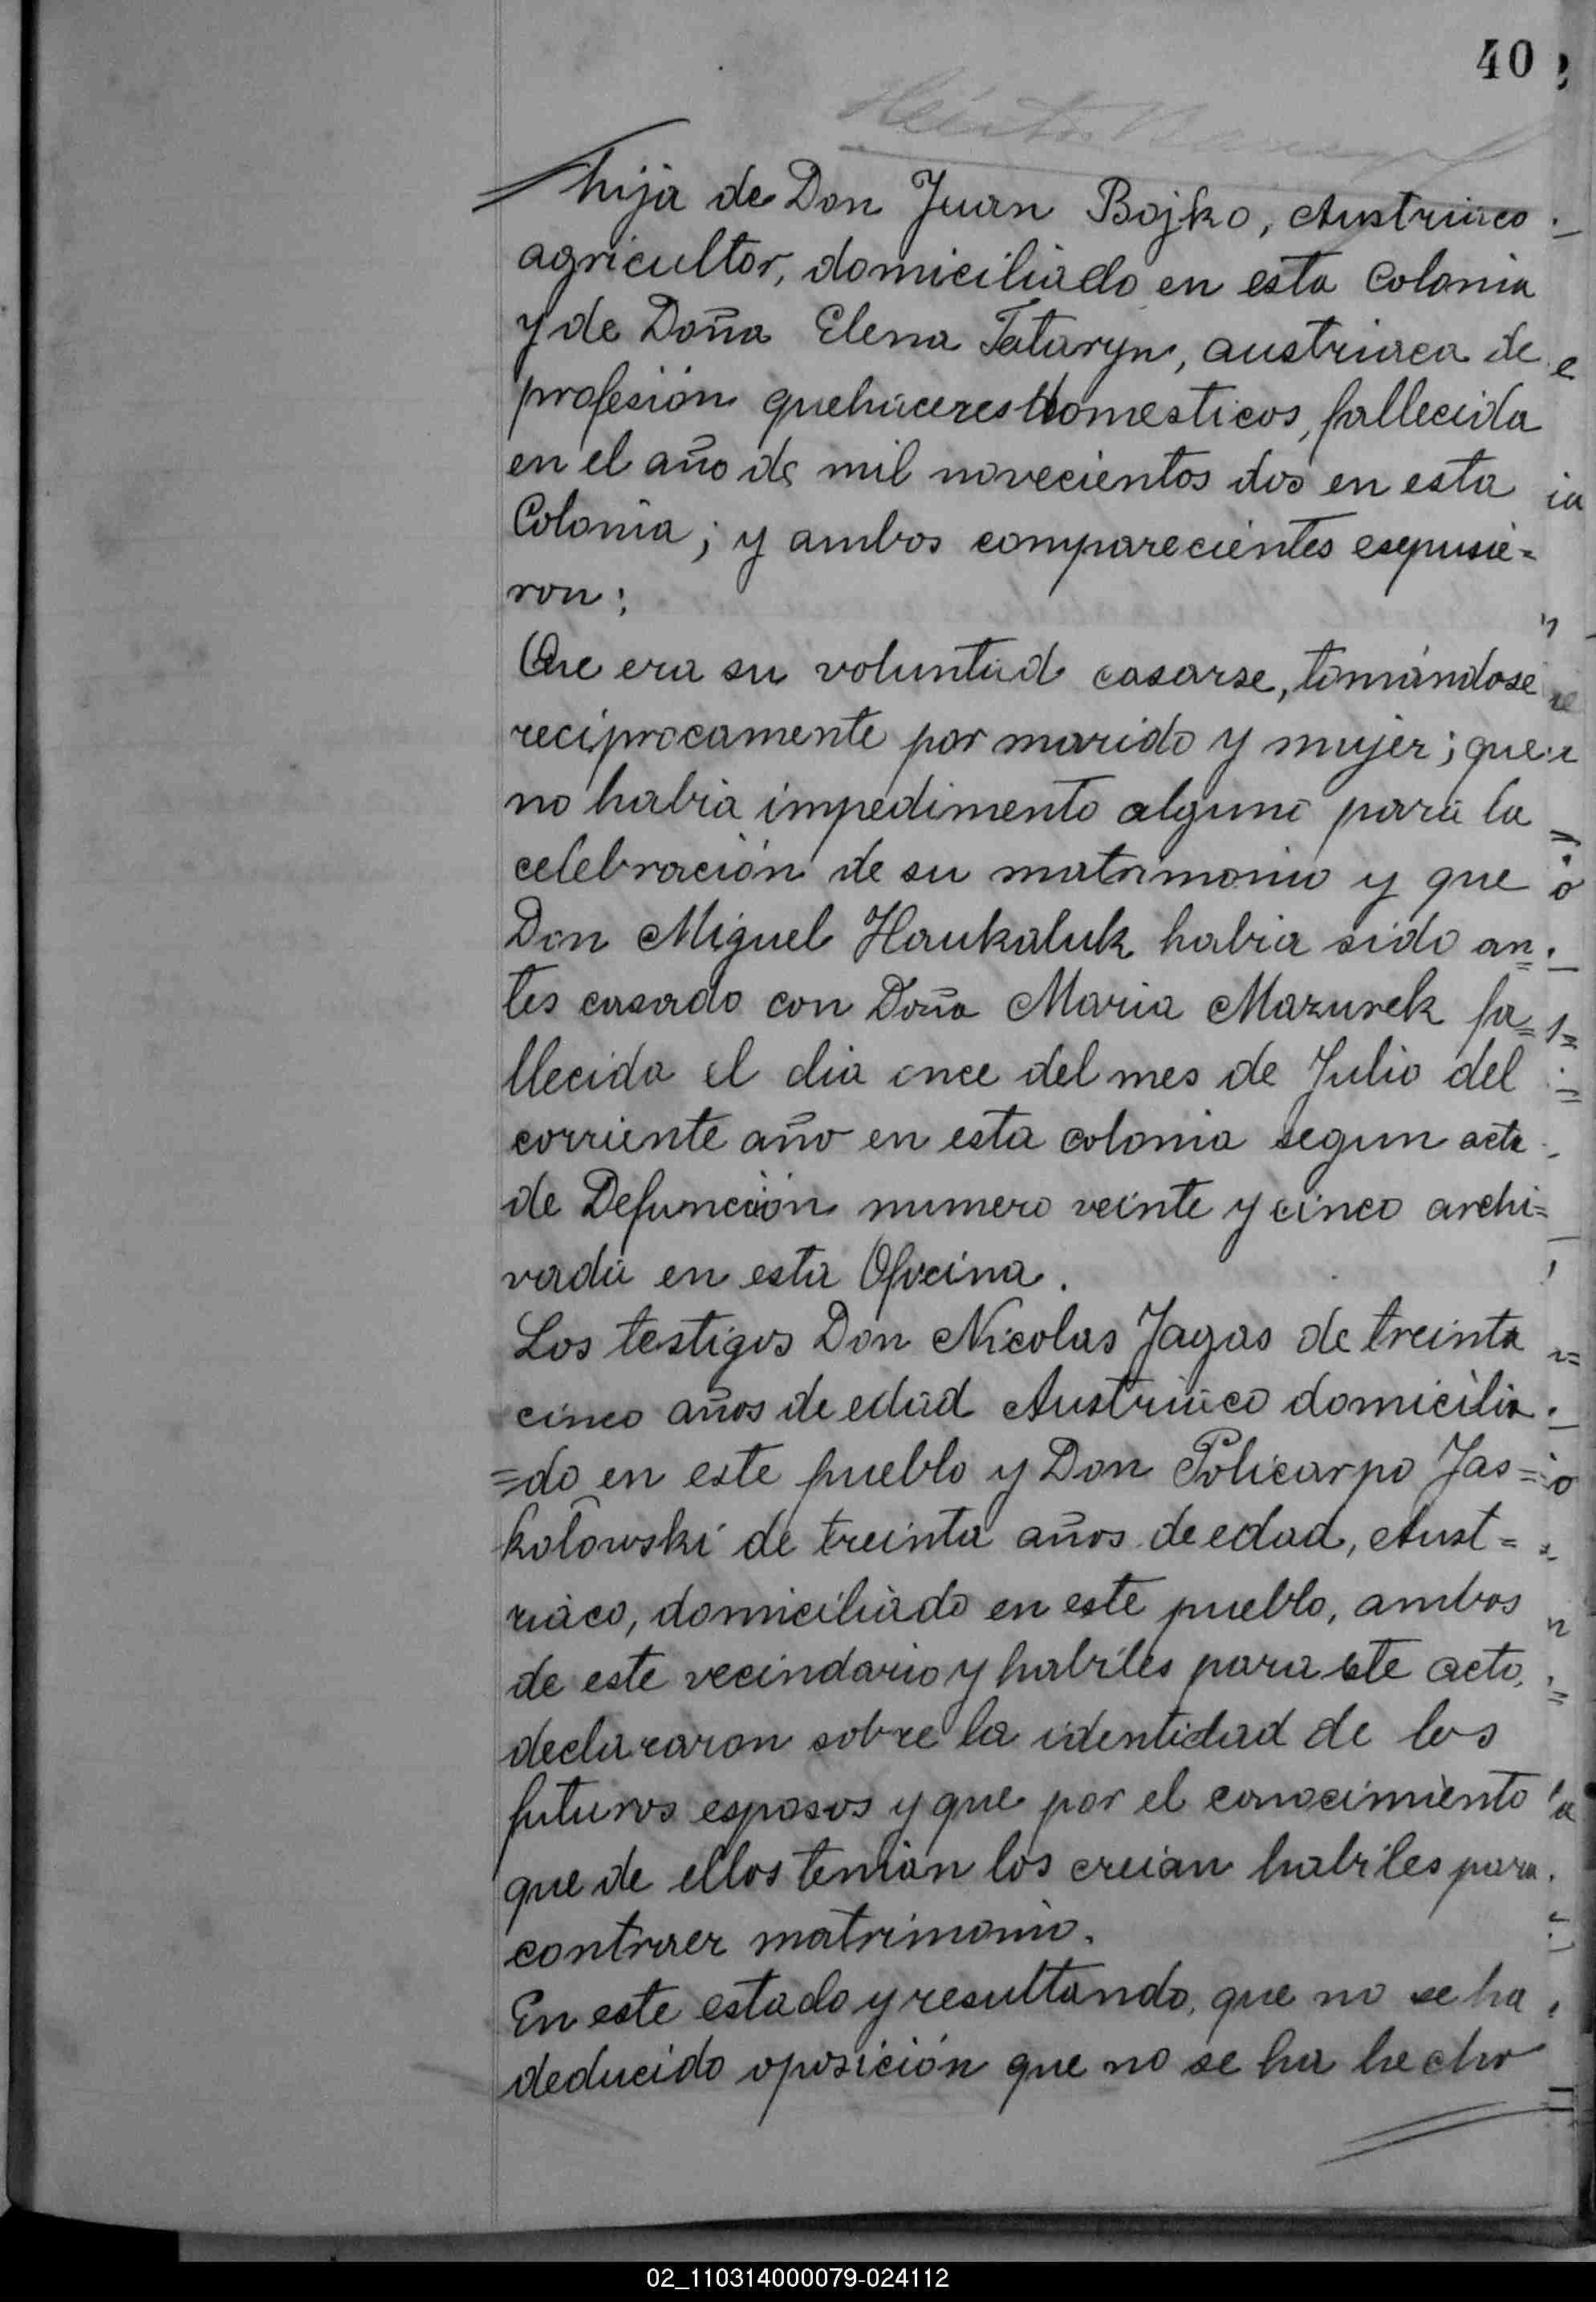 40
hija de Don Juan Bojko, Austriaco
agricultor, domiciliado en esta Colonia
y de Doña Elena Tataryn, austriaca de
profesión quehaceres domesticos, fallecida
en el año de mil novecientos dos en esta
Colonia; y ambos comparecientes espusie=
ron:
Que era su voluntad casarse, tomándose
reciprocamente por marido y mujer; que
no habia impedimento alguno para la
celebración de su matrimonio y que
Don Miguel Haukaluk habia sido an=
tes casado con Doña Maria Mazurek fa=
llecida el dia once del mes de Julio del
corriente año en esta colonia segun acta
de Defunción numero veinte y cinco archi=
vada en esta Oficina.
Los testigos Don Nicolas Jagas de treinta
cinco años de edad Austriaco domicilia
=do en este pueblo y Don Policarpo Jas=
kolowski de treinta años de edad, Aust=
riaco, domiciliado en este pueblo, ambos
de este vecindario y habiles para este acto,
declararon sobre la identidad de los
futuros esposos y que por el conocimiento
que de ellos tenian los creian habiles para
contraer matrimonio.
En este estado y resultando, que no se ha
deducido oposición que no se ha hecho
02_110314000079-024112